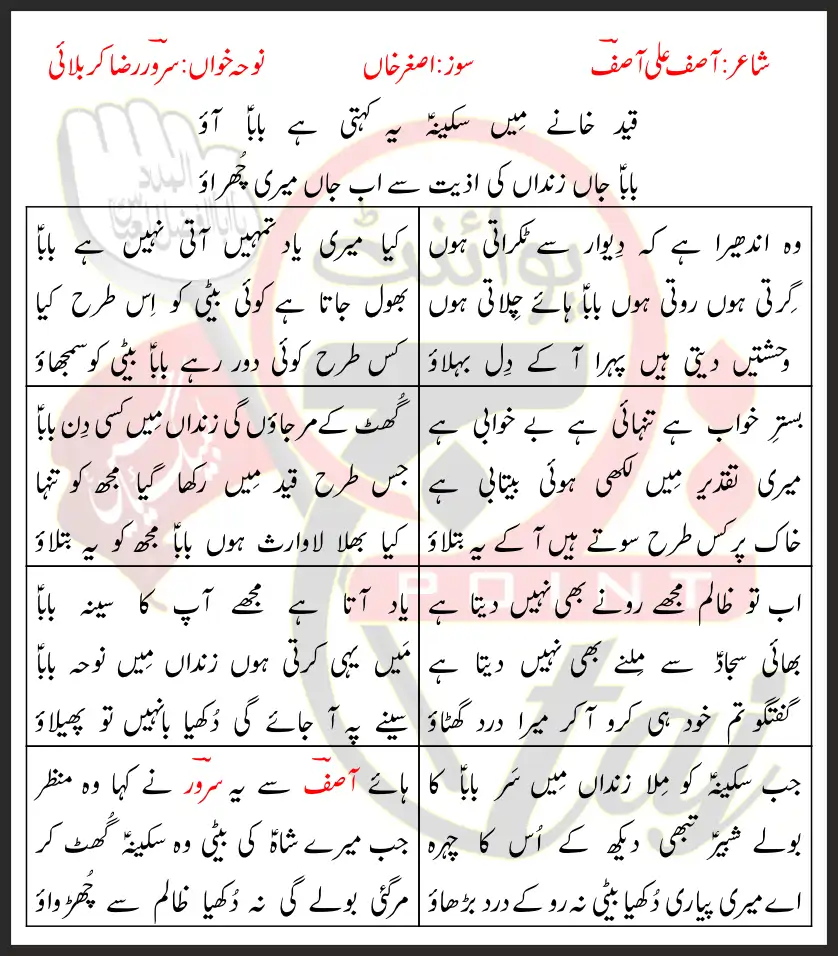 شاعر: آصف علی آصف سوز: اصغر خاں نوحہ خواں: سرور رضا کربلائی
قید خانے مِیں سکینہؑ یہ کہتی ہے باباؑ آؤ
باباؑ جاں زنداں کی اذیت سے اب جاں میری چُھراؤ
وہ اندھیرا ہے کہ دِیوار سے ٹکراتی ہوں
گِرتی ہوں روتی ہوں باباؑ ہائے چِلاتی ہوں
وحشتیں دیتی ہیں پہرا آ کے دِل بہلاؤ
کیا میری یاد تمہیں آتی نہیں ہے باباؑ
بھول جاتا ہے کوئی بیٹی کو اِس طرح کیا
کس طرح کوئی دور رہے باباؑ بیٹی کو سمجھاؤ
بسترِ خواب ہے تنہائی ہے بے خوابی ہے
میری تقدیر مِیں لکھی ہوئی بیتابی ہے
خاک پر کس طرح سوتے ہیں آ کے یہ بتلاؤ
گُھٹ کے مر جاؤں گی زنداں مِیں کسی دِن باباؑ
جس طرح قید مِیں رکھا گیا مجھ کو تنہا
کیا بھلا لاوارث ہوں باباؑ مجھ کو یہ بتلاؤ
اب تو ظالم مجھے رونے بھی نہیں دیتا ہے
بھائی سجادؑ سے مِلنے بھی نہیں دیتا ہے
گفتگو تم خود ہی کرو آ کر میرا درد گھٹاؤ
یاد آتا ہے مجھے آپ کا سینہ باباؑ
مَیں یہی کرتی ہوں زنداں مِیں نوحہ باباؑ
سینے پہ آ جائے گی دُکھیا بانہیں تو پھیلاؤ
جب سکینہؑ کو مِلا زنداں مِیں سَر باباؑ کا
بولے شبیرؑ تبھی دیکھ کے اُس کا چہرہ
اے میری پیاری دُکھیا بیٹی نہ رو کے درد بڑھاؤ
ہائے آصف سے یہ سرور نے کہا وہ منظر
جب میرے شاہؑ کی بیٹی وہ سکینہؑ گُھٹ کر
مرگئی بولے گی نہ دُکھیا ظالم سے چُھڑواؤ
پوائنٹ
POINT
taj